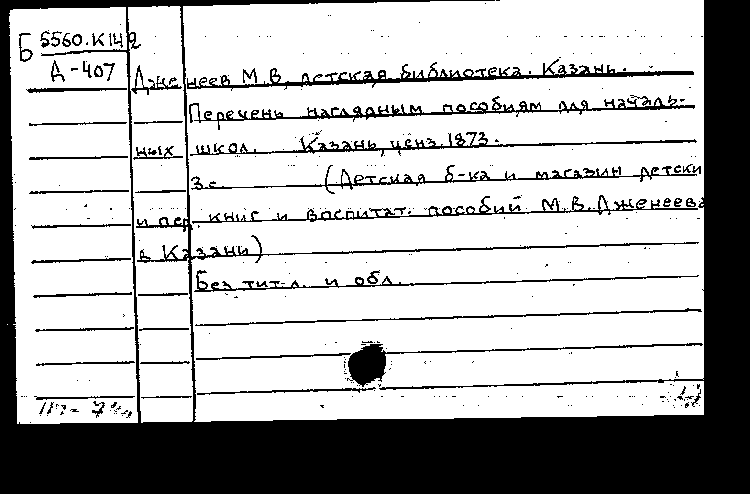 Б 5560.К142
Д-407
Дженеев, М.В, детская библиотека. Казань.
Перечень наглядным пособиям для началь-
ных школ. Казань, ценз. 1873.
3 с. (Детская б-ка и магазин детски
и пер. книг и воспитат. пособий М.В.Дженеева
в Казани)
Без тит.л. и обл.